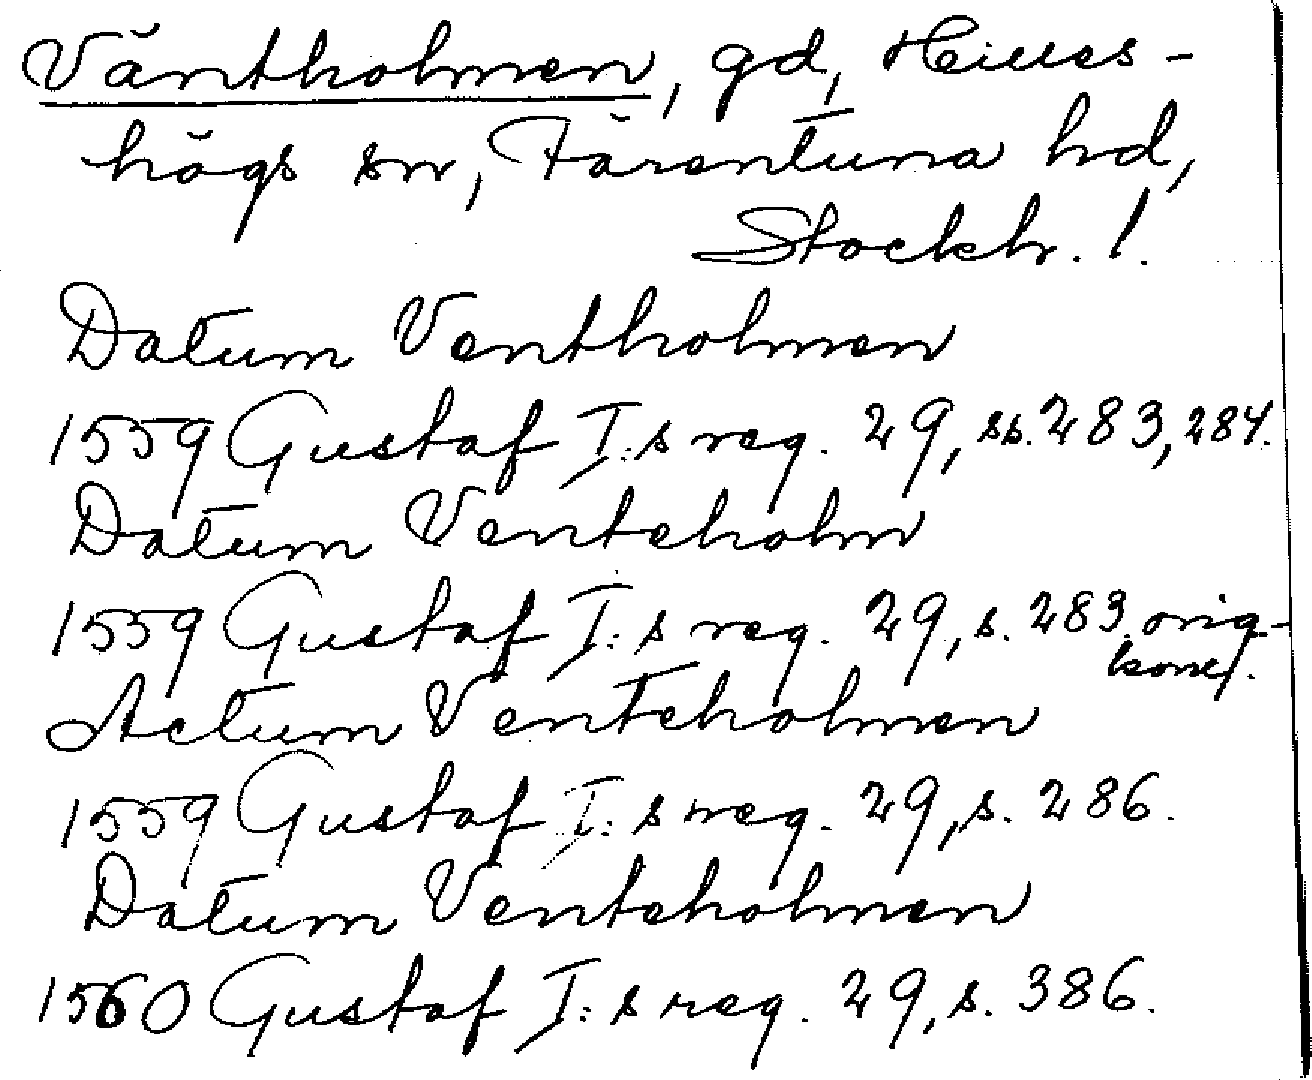 Väntholmen, gd, Hilles-
högs sn, Färentuna hd,
Stockh. l.
Datum Ventholmen
1559 Gustaf I:s reg. 29, ss. 283, 284.
Datum Venteholm
1559 Gustaf I:s reg. 29, s. 283. orig-
konc.
Actum Venteholmen
1559 Gustaf I:s reg. 29, s. 286.
Datum Venteholmen
1560 Gustaf I:s reg. 29, s. 386.